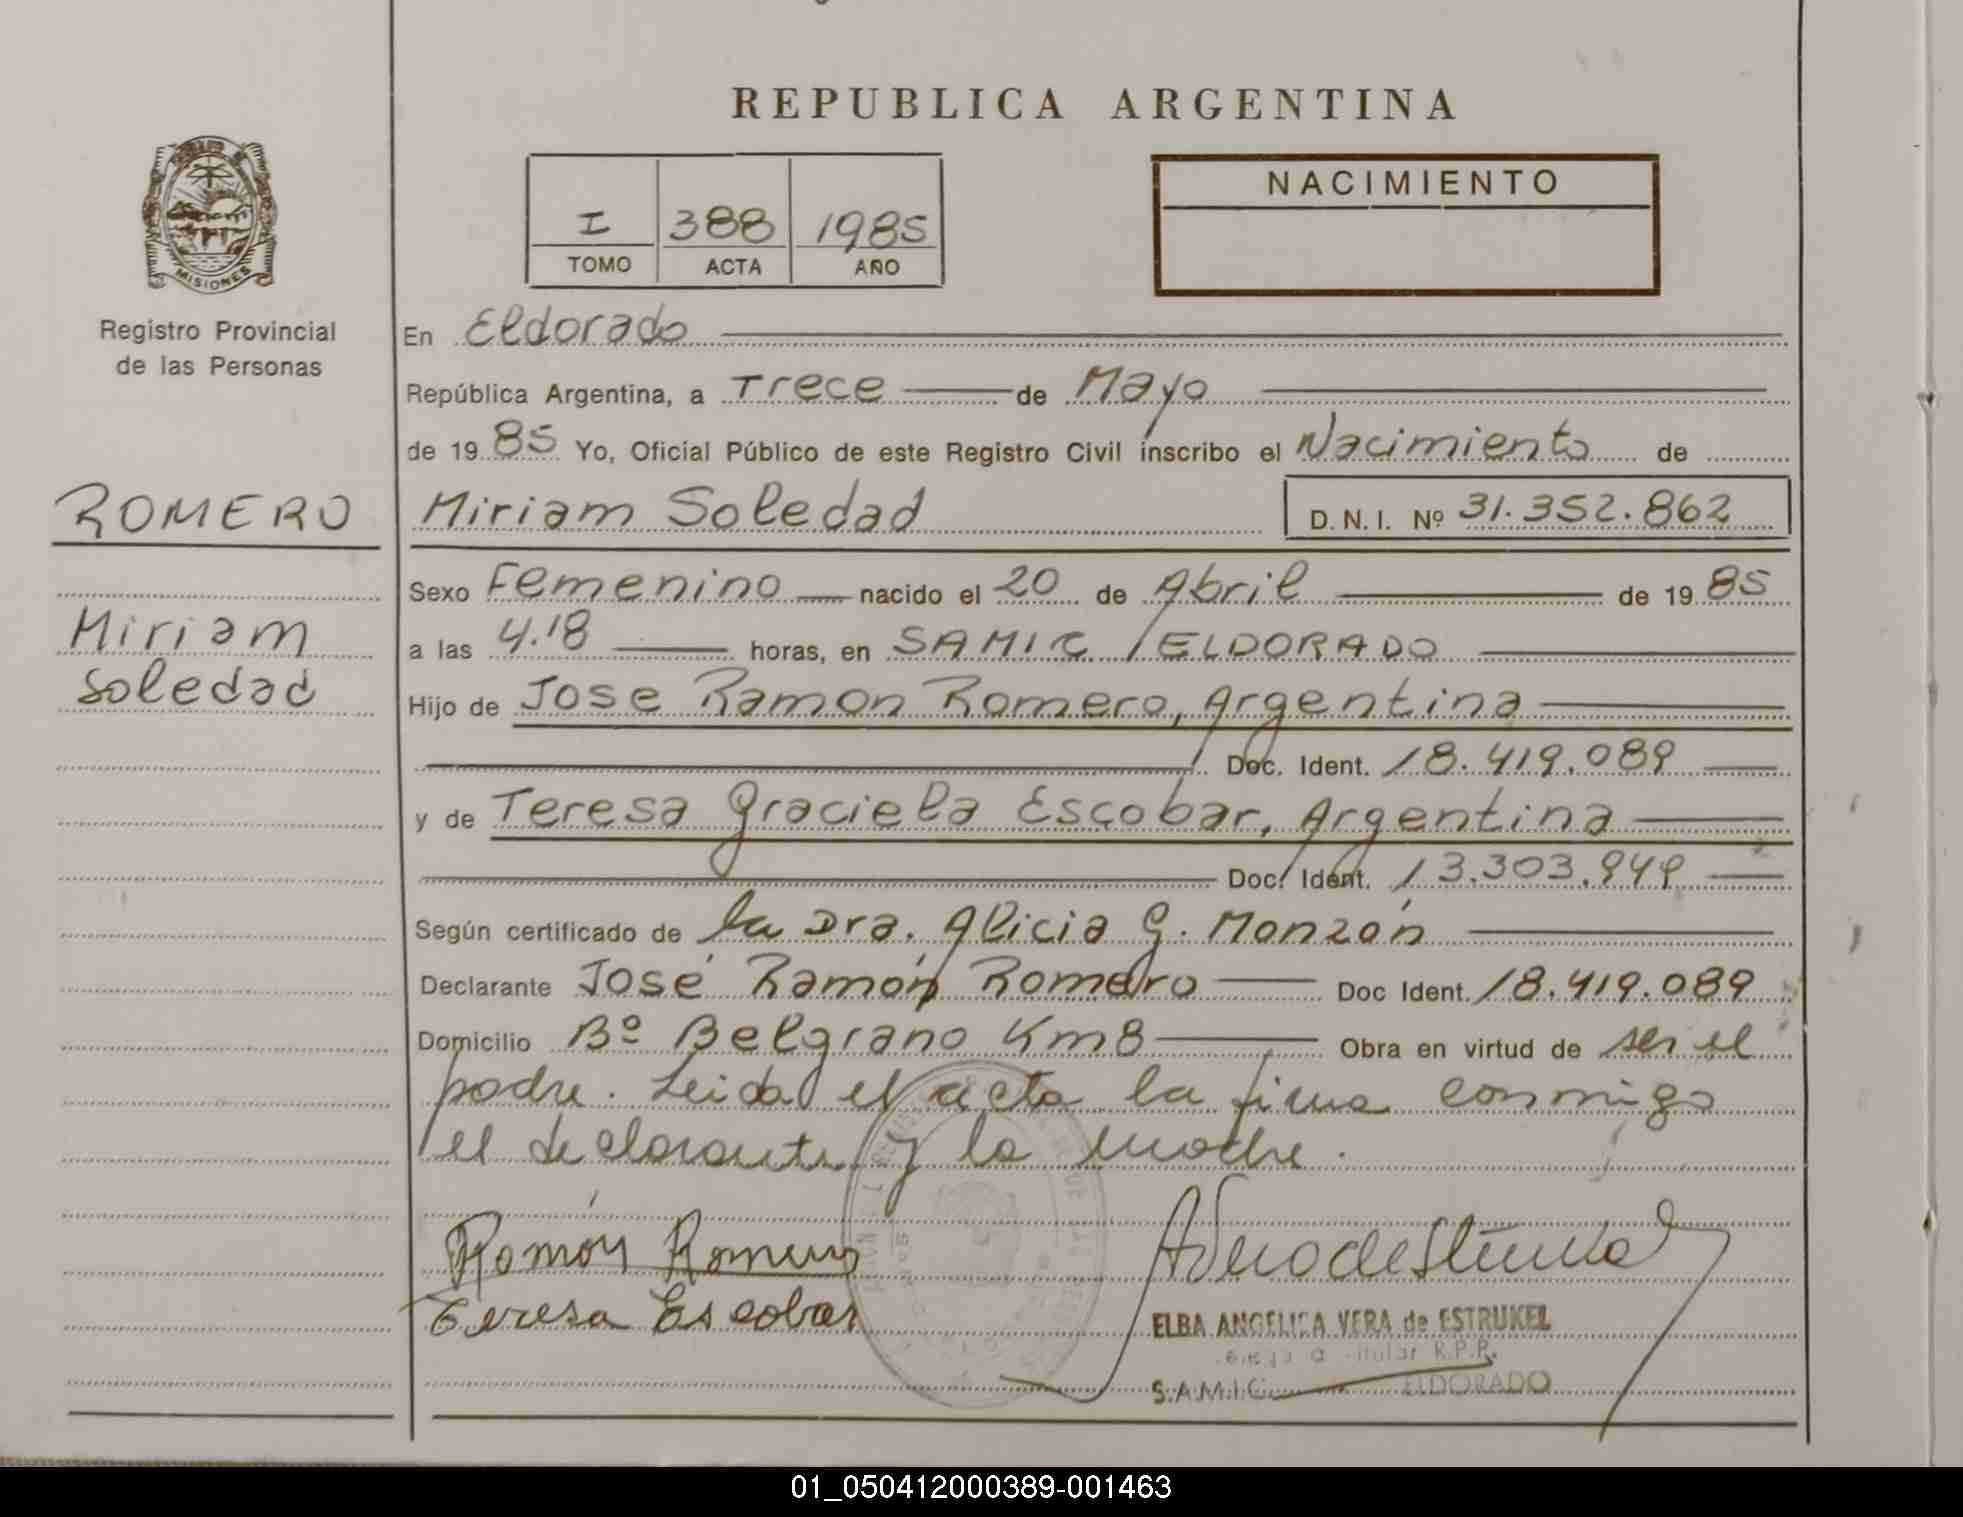 REPUBLICA ARGENTINA
I 388 1985
TOMO ACTA AÑO
NACIMIENTO
MISIONES
Registro Provincial
de las Personas
ROMERO
Miriam
Soledad
En Eldorado
República Argentina, a Trece de Mayo
de 1985 Yo, Oficial Público de este Registro Civil inscribo el Nacimiento de
Miriam Soledad D.N.I. Nº 31.352.862
Sexo Femenino nacido el 20 de Abril de 1985
a las 4.18 horas, en SAMIC / ELDORADO
Hijo de Jose Ramon Romero, Argentina
Doc. Ident. 18.419.089
y de Teresa Graciela Escobar, Argentina
Doc. Ident. 13.303.949
Según certificado de la Dra. Alicia G. Monzón
Declarante José Ramón Romero Doc Ident. 18.419.089
Domicilio Bº Belgrano Km 8 Obra en virtud de ser el
padre. Leida el acta la firma conmigo
el declarante y la madre.
Ramón Romero
Teresa Escobar
ELBA ANGELICA VERA de ESTRUKEL
Titular R.P.P.
S.A.M.I.C. ELDORADO
01_050412000389-001463